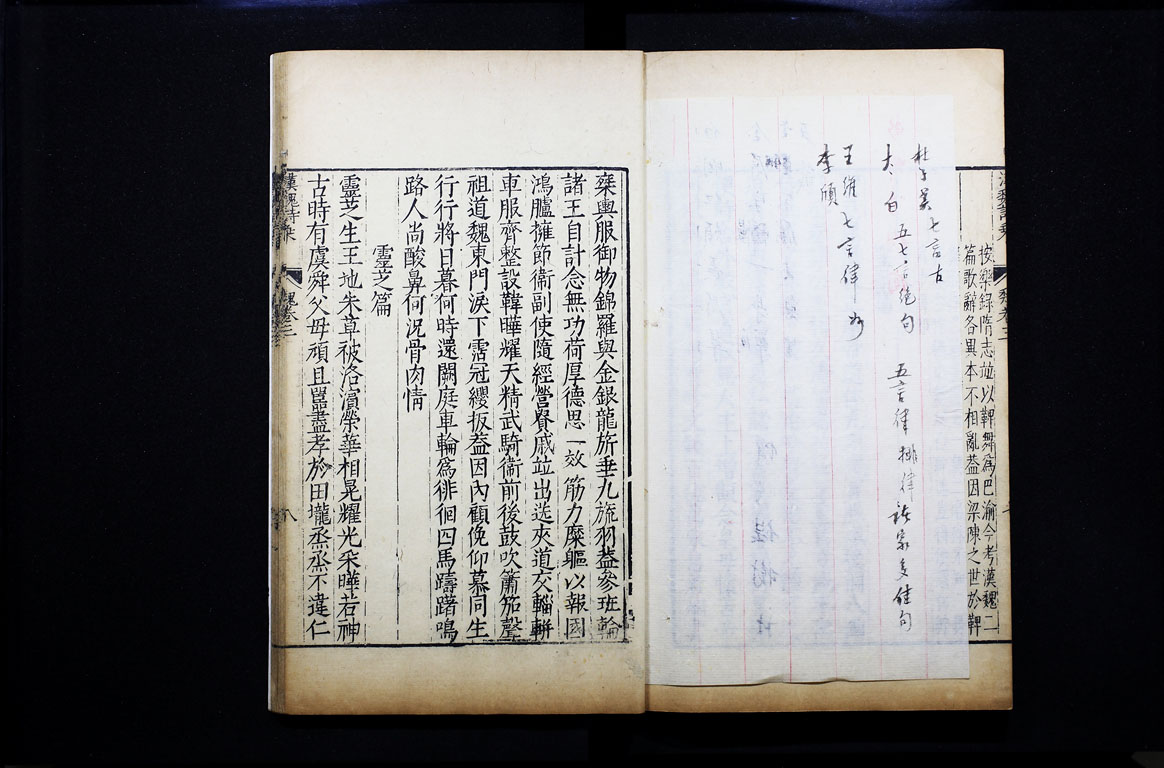 按樂錄隋志並以鞞舞為巴渝今考漢魏二
篇歌辭各異本不相亂葢因梁陳之世於鞞
杜子美七言古
太白五七言絕句 五言律排律諸家多佳句
王維七言律
李頎
乘輿服御物錦羅與金銀龍旂垂九旒羽葢參班輪
諸王自計念無功荷厚德思一效筋力糜軀以報國
鴻臚擁節衞副使隨經營貴戚並出送夾道交輜軿
車服齊整設韡曄耀天精武騎衞前後鼓吹簫笳聲
祖道魏東門淚下霑冠纓扳葢因內顧俛仰慕同生
行行將日暮何時還闕庭車輪爲徘徊四馬躊躇鳴
路人尚酸鼻何況骨肉情
靈芝篇
靈芝生王地朱草被洛濱榮華相晃耀光采曄若神
古時有虞舜父母頑且嚚盡孝於田壠烝烝不違仁
漢魏詩乘
魏卷三
八